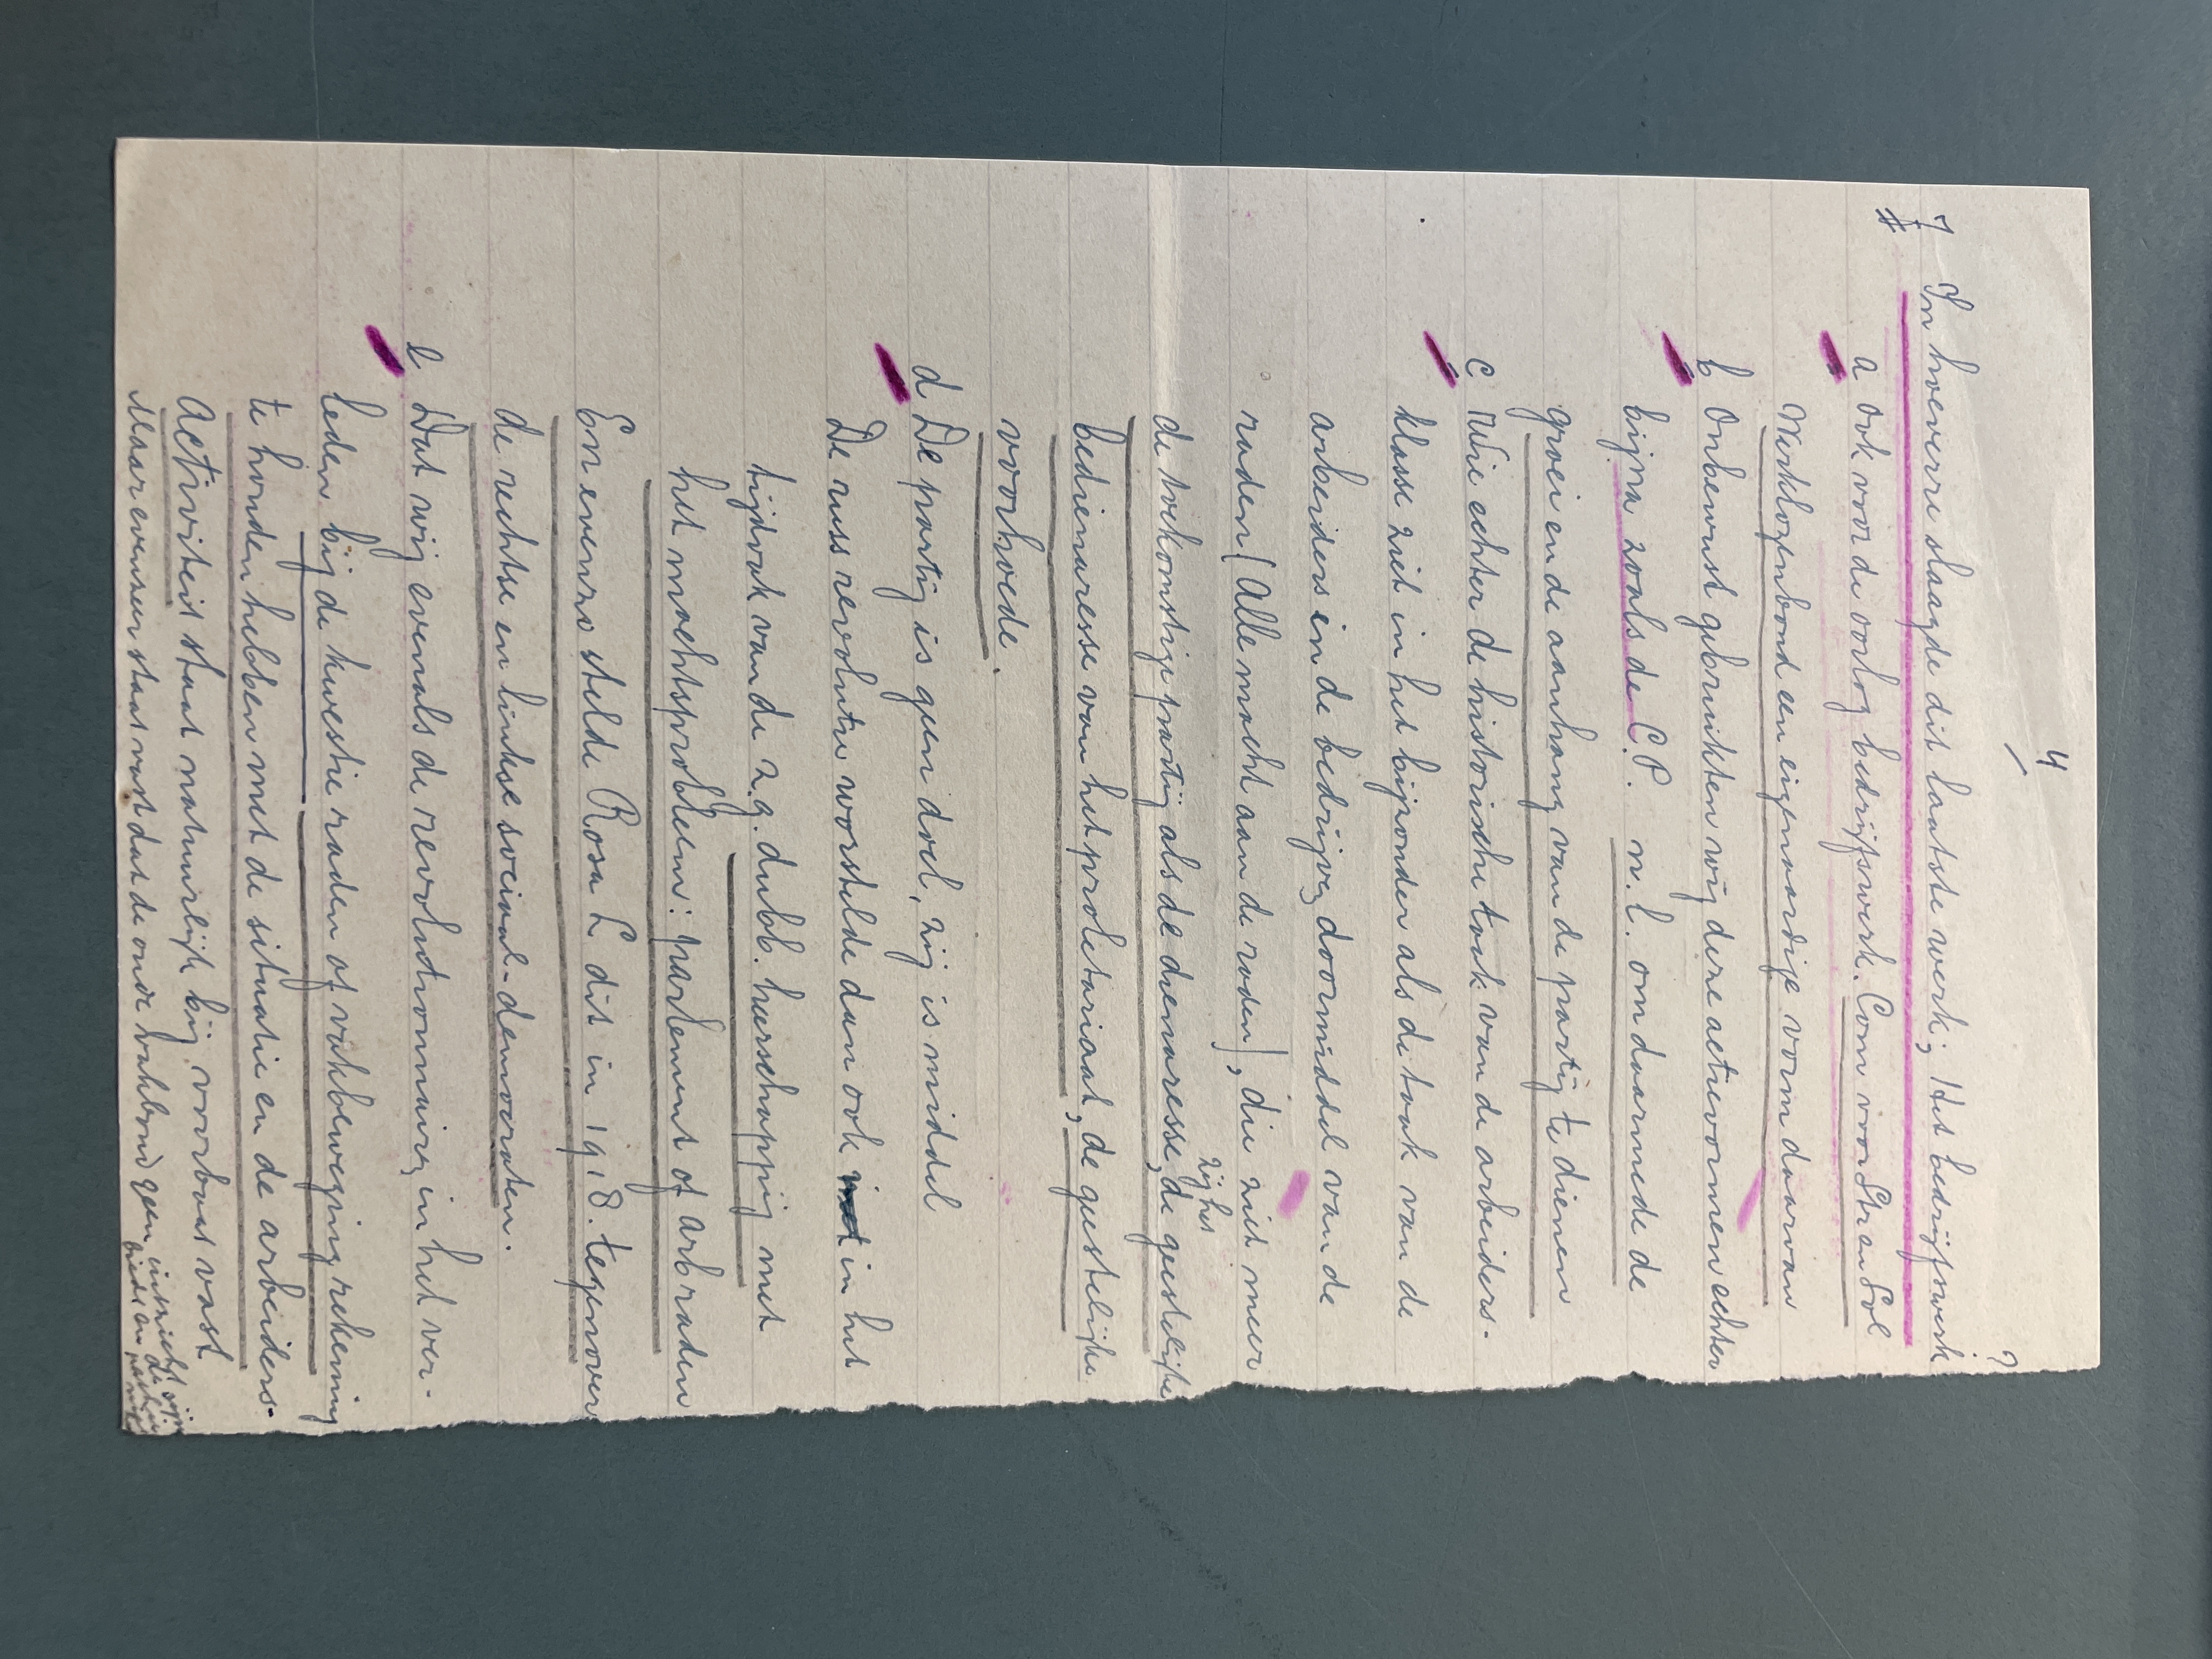 4
7 In hoeverre slaagde dit laatste werk; Het bedrijfswerk?
a Ook voor de oorlog bedrijfswerk. Com voor Str en Sol
Werklozenbond een eigenaardige vorm daarvan
b Onbewust gebruikten wij deze actievormen echter
bijna zoals de C.P. n.l. om daarmede de
groei en de aanhang van de partij te dienen
c Wie echter de historische taak van de arbeiders-
klasse ziet in het bijzonder als de taak van de
arbeiders in de bedrijven doormiddel van de
raden (Alle macht aan de raden), die ziet meer
de toekomstige partij als de dienaresse, de geestelijke
bedienaresse van het proletariaat, de geestelijke
voorhoede.
d De partij is geen doel, zij is middel
De russ revolutie worstelde dan ook in het
tijdvak van de z.g. dubb. heerschappij met
het machtsprobleem: parlement of arb raden
En evenzo stelde Rosa L dit in 1918 tegenover
de rechtse en linkse sociaal-democraten.
e Dat wij evenals de revolutionnairen in het ver-
leden bij de kwestie raden of vakbeweging rekening
te houden hebben met de situatie en de arbeiders-
activiteit staat natuurlijk bij voorbaat vast
Maar evenzeer staat vast dat de oude vakbond geen